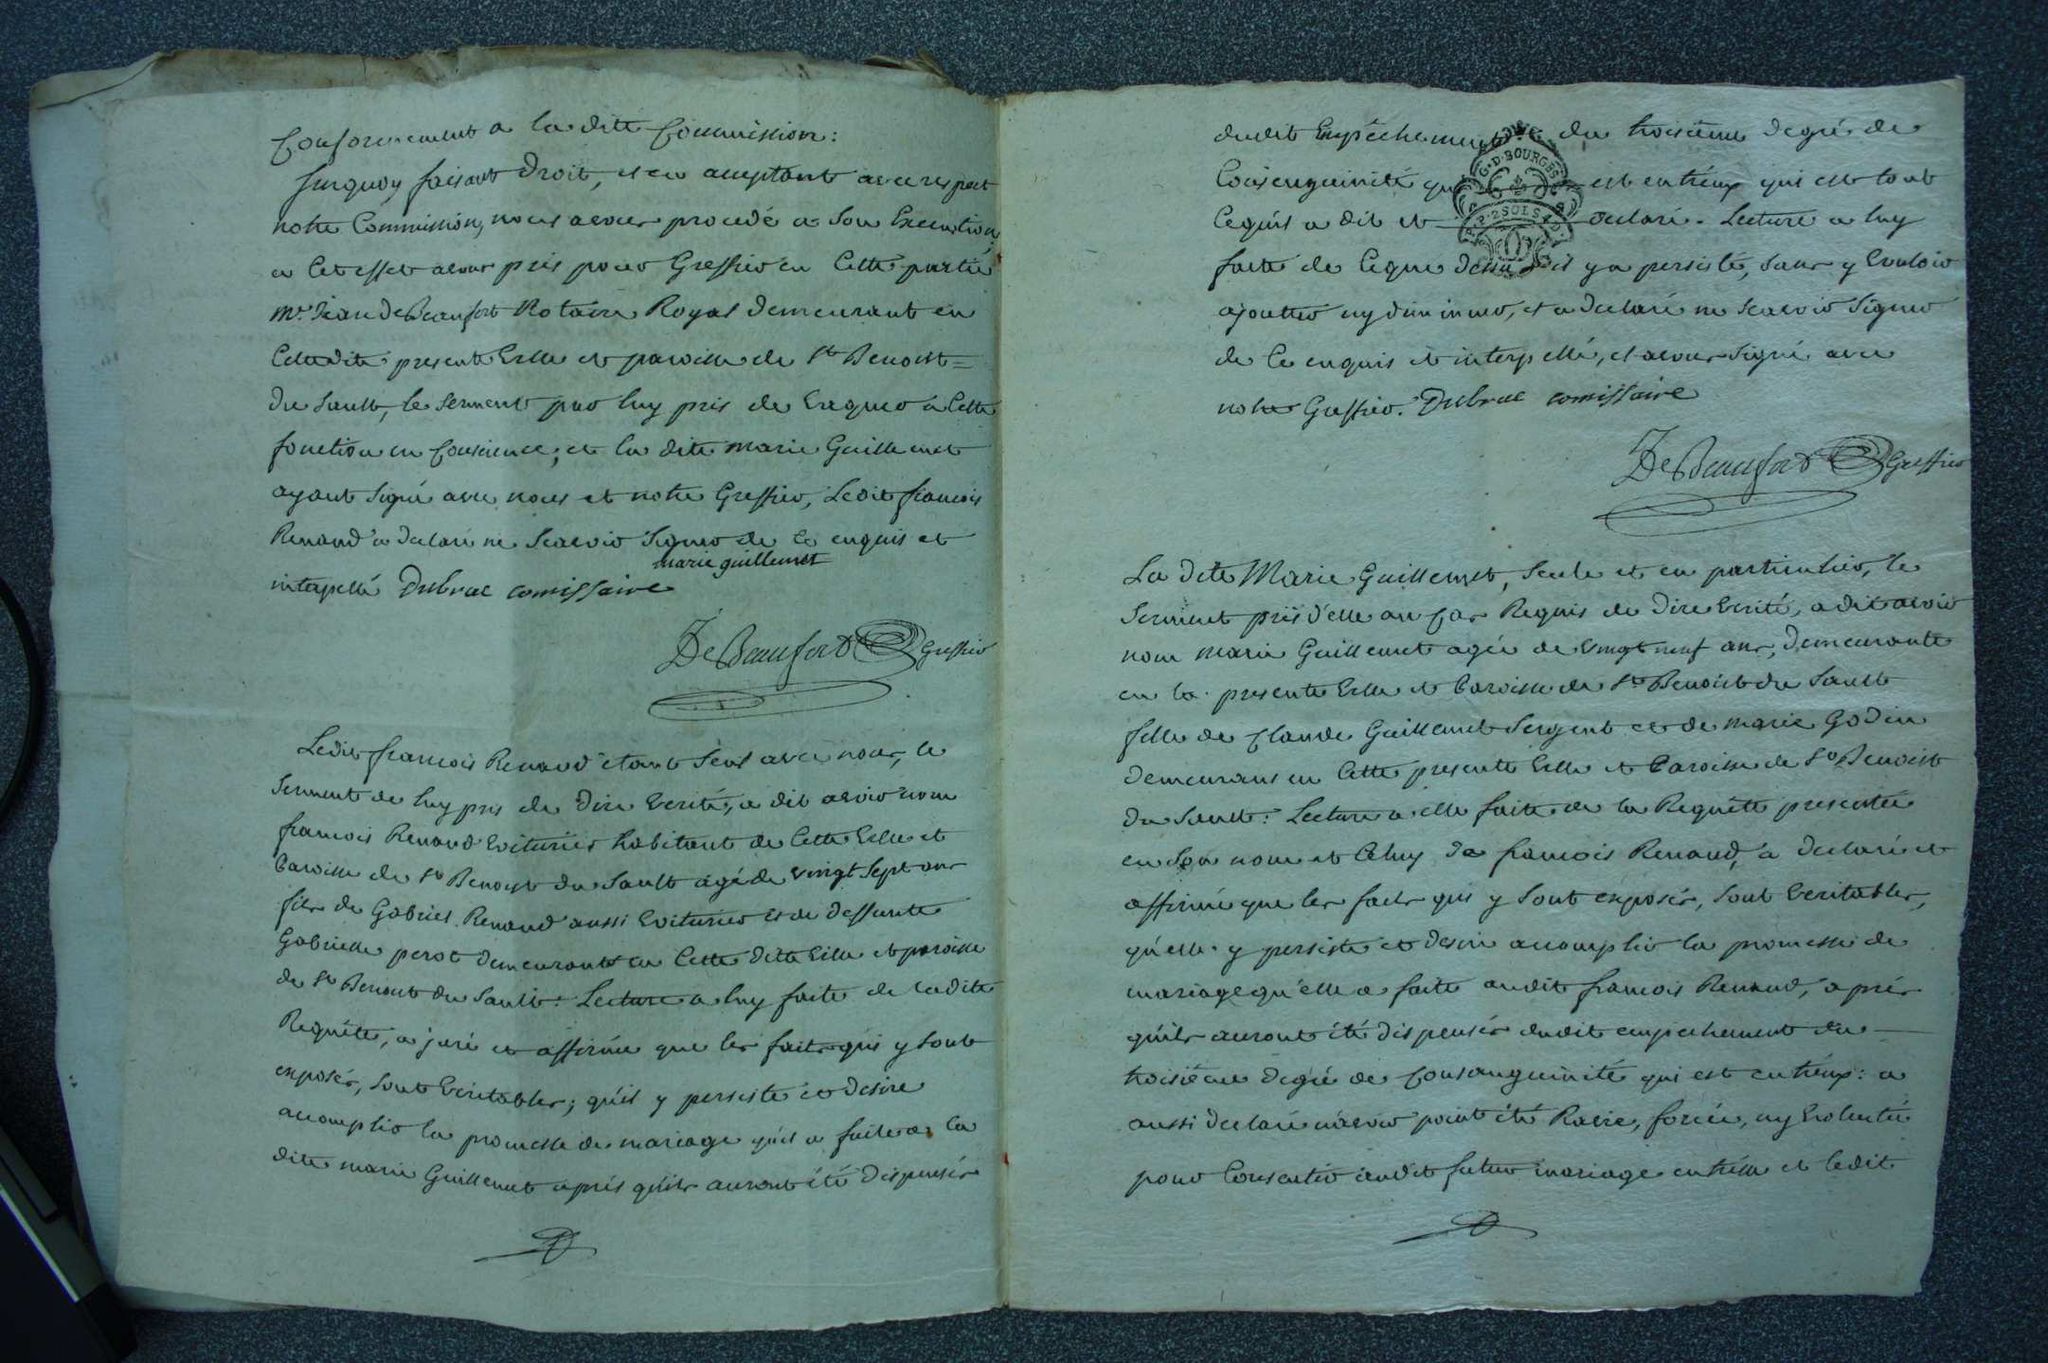 Conformement a la ditte Commission:
Surquoy faisant Droit, et en acceptant avec respect
notre Commission, nous avons procedé a Son Execution,
a Cet effet avons pris pour Greffier en Cette partie
Mr. Jean De Beaufort Notaire Royal demeurant en
Cettedite presente Ville et paroisse de St Benoist=
du Sault, le Serment par luy pris de Vaquer a Cette
fonction en Conscience; et la dite marie Guillemet
ayant Signé avec nous et notre Greffier, Ledit françois
Renaud a declaré ne Scavoir Signer de Ce enquis et
marie guillemet
interpellé Dubrac comissaire
De Beaufort Greffier
Ledit françois Renaud étant Seul avec nous, le
Serment de luy pris de dire Verité, a dit avoir nom
françois Renaud Voiturier habitant de Cette Ville et
Paroisse de St Benoist du Sault agé de vingt Sept ans
fils de Gabriel Renaud aussi Voiturier et de deffunte
Gabrielle perot demeurants en Cette ditte Ville et paroisse
de St Benoist du Sault: Lecture a luy faite de ladite
Requête, a juré et affirmé que les faits qui y sont
exposés, sont Veritables; qu'il y persiste et desire
accomplir la promesse de mariage qu'il a faite a la
dite marie Guillemet après qu'ils auront été dispensés
dudit Empêchement du troisième degré de
Consenguinité qui est entréux qui est tout
Cequ'il a dit et declaré. Lecture a luy
G.D.BOURGES
2 SOLS
faite de Ceque dessus il y a persisté, sans y Vouloir
ajoutter ny diminuer, et a declaré ne Scavoir Signer
de Ce enquis et interpellé, et avons Signé avec
notre Greffier. Dubrac comissaire
De Beaufort Greffier
La dite Marie Guillemet, Seule et en particulier, le
Serment pris d'elle au Cas Requis de dire Verité, a dit avoir
nom marie Guillemet agée de vingt neuf ans, demeurante
en la presente Ville et Paroisse de St Benoist du Sault
fille de Claude Guillemet Sergent et de marie Godin
demeurans en Cette presente Ville et Paroisse de St Benoist
du Sault: Lecture a elle faite de la Requête presentée
en Son nom et Celuy de françois Renaud, a declaré et
affirmé que les faits qui y sont exposés, sont Veritables,
qu'elle y persiste et desire acomplir la promesse de
mariage qu'elle a faite audit françois Renaud, après
qu'ils auront été dispensés dudit empechement du
troisième degré de Consanguinité qui est entréux: a
aussi declaré n'avoir point été Ravie, forcée, ny Violentée
pour Consentir audit futur mariage entrélle et ledit